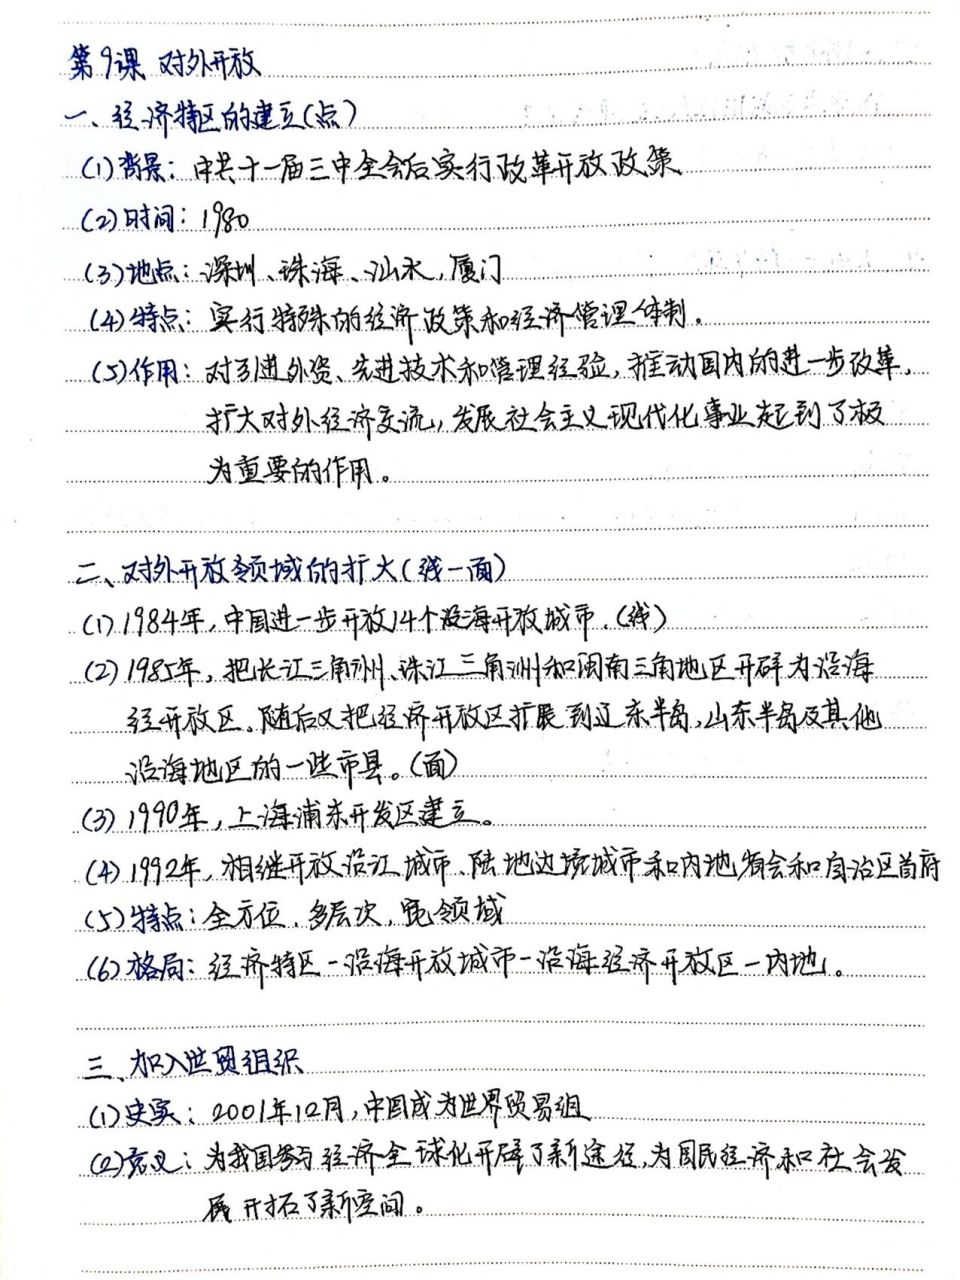 第9课 对外开放
一、经济特区的建立(点)
(1)背景：中共十一届三中全会后实行改革开放政策
(2)时间：1980
(3)地点：深圳、珠海、汕头,厦门
(4)特点：实行特殊的经济政策和经济管理体制.
(5)作用：对引进外资、先进技术和管理经验,推动国内的进一步改革,
扩大对外经济交流,发展社会主义现代化事业起到了极
为重要的作用。
二、对外开放领域的扩大(线一面)
(1)1984年,中国进一步开放14个沿海开放城市.(线)
(2)1985年,把长江三角洲、珠江三角洲和闽南三角地区开辟为沿海
经开放区.随后又把经济开放区扩展到辽东半岛,山东半岛及其他
沿海地区的一些市县。(面)
(3)1990年,上海浦东开发区建立。
(4)1992年,相继开放沿江城市、陆地边境城市和内地省会和自治区首府
(5)特点：全方位.多层次,宽领域
(6)格局：经济特区-沿海开放城市-沿海经济开放区-内地。
三、加入世贸组织
(1)史实：2001年12月,中国成为世界贸易组
(2)意义：为我国参与经济全球化开辟了新途径,为国民经济和社会发
展开拓了新空间。